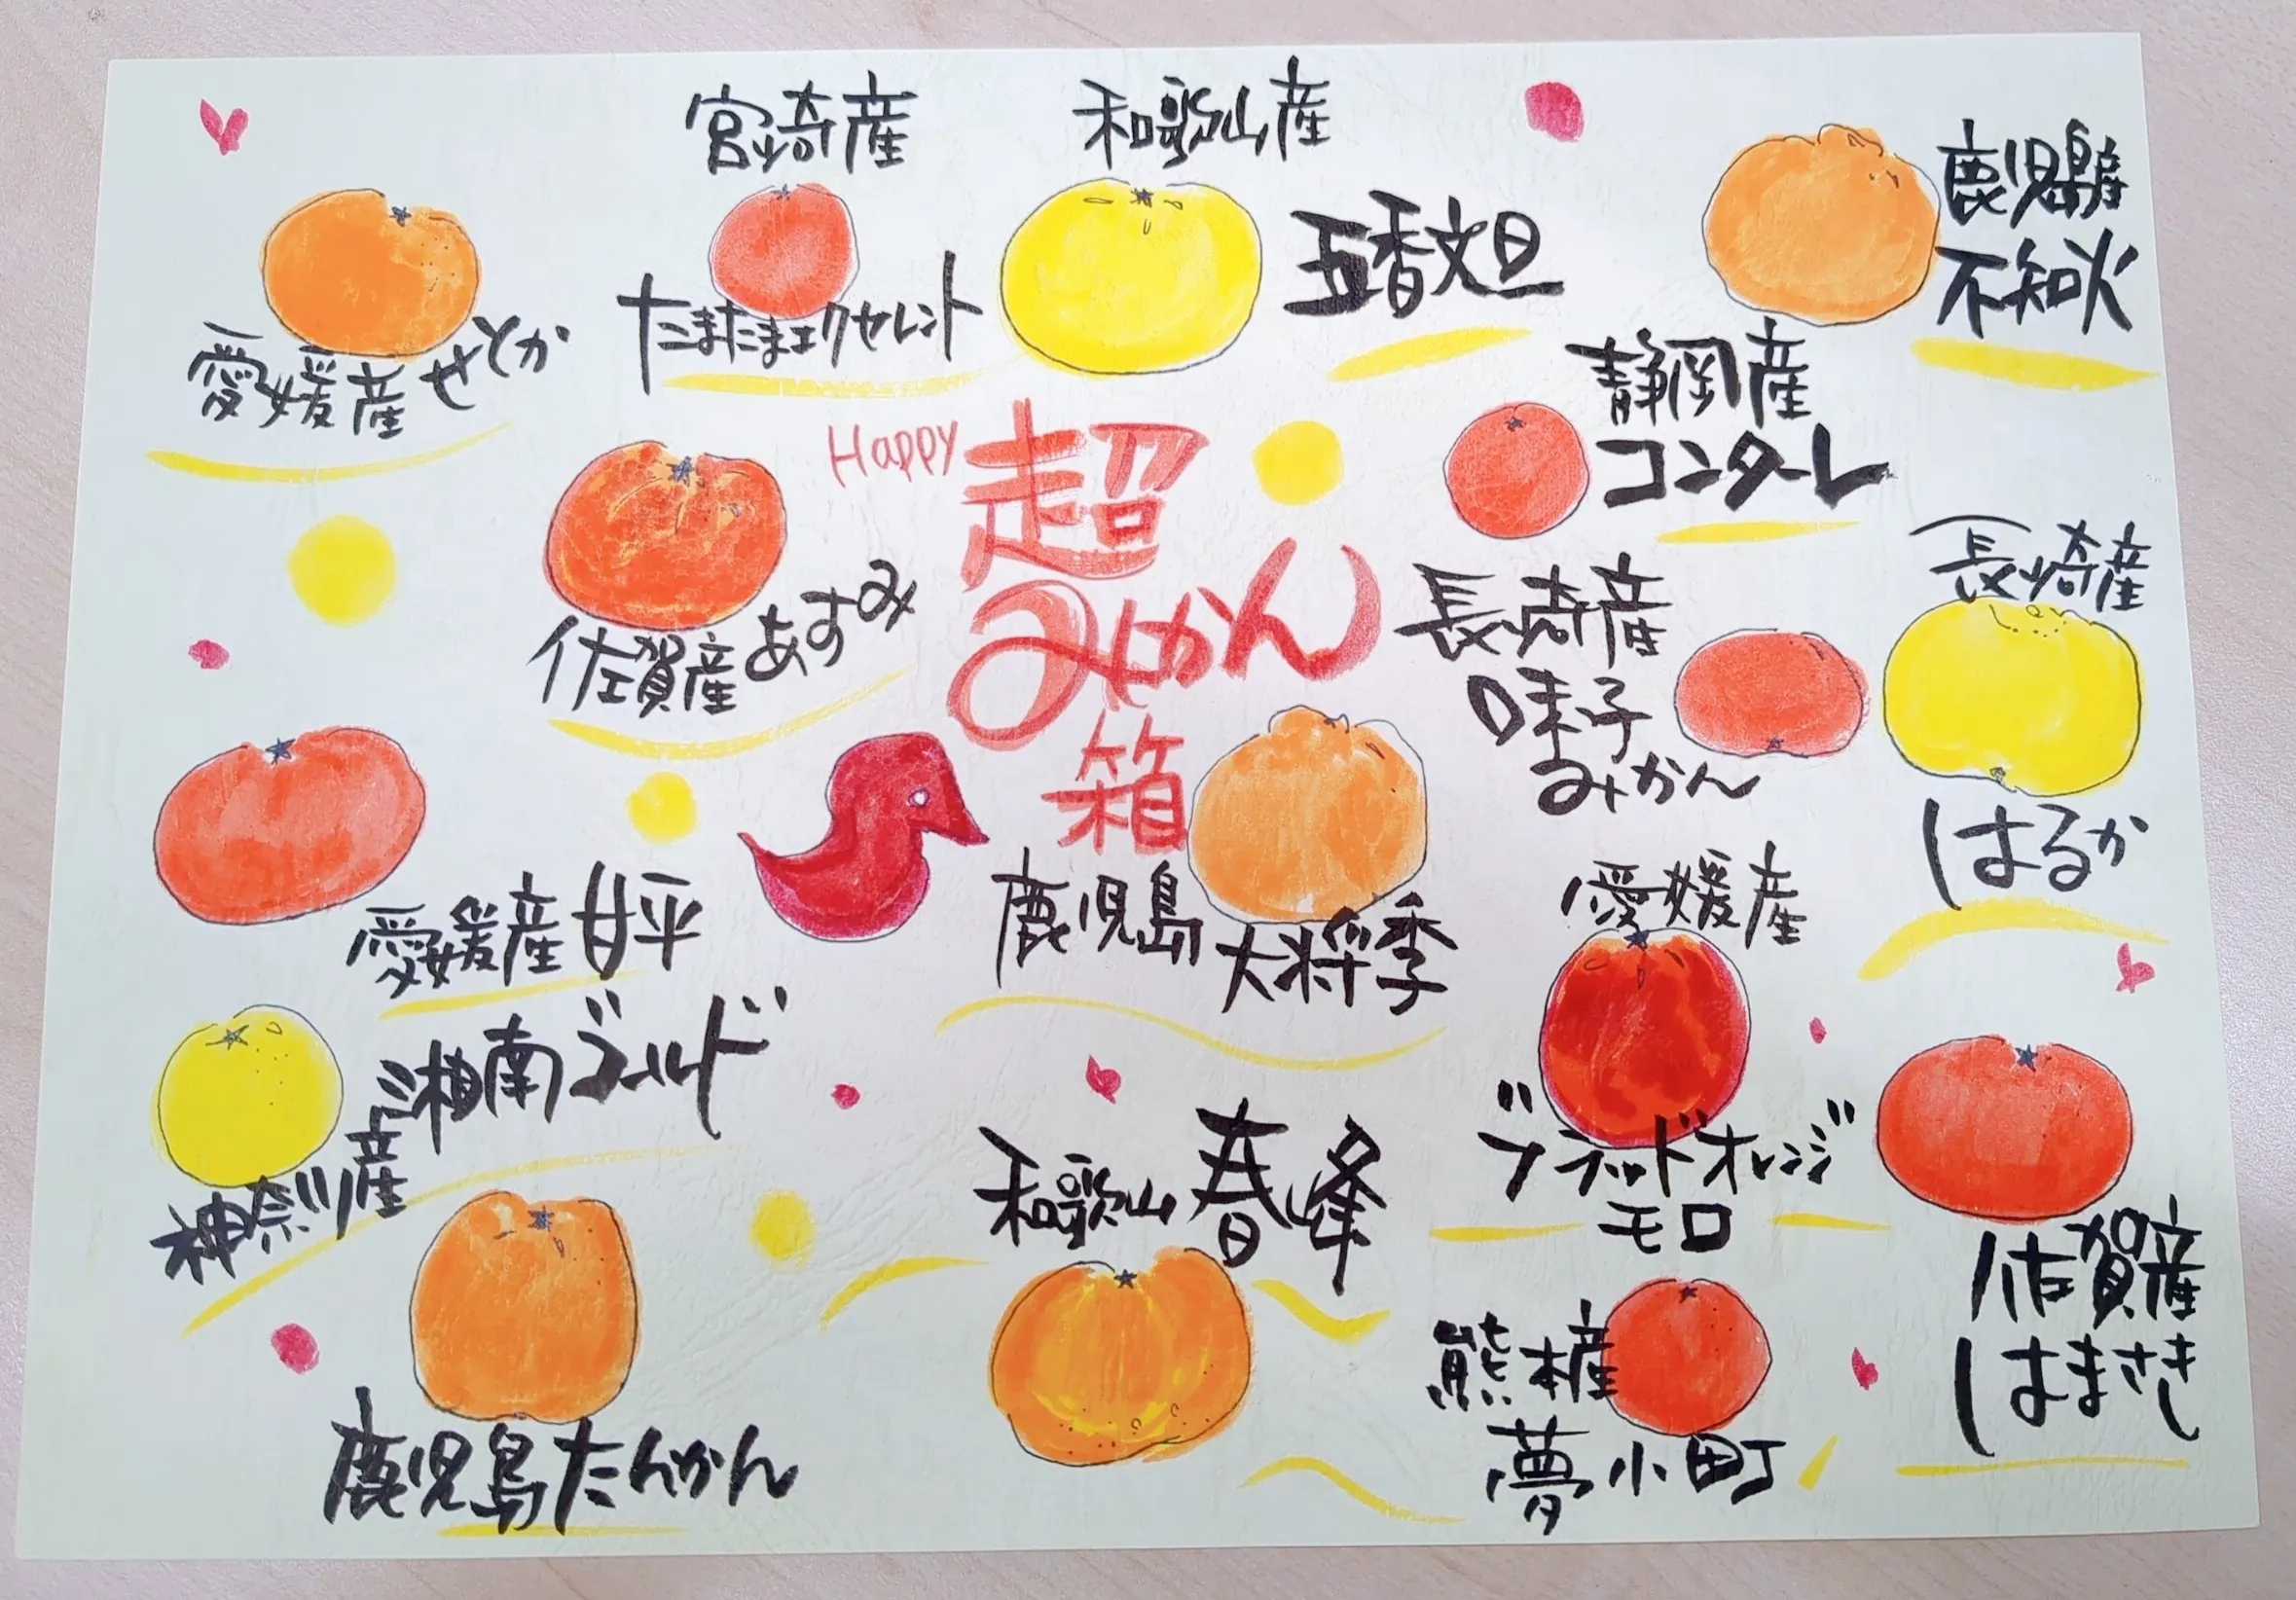 宮崎産
たまたまエクセレント
和歌山産
五香文旦
鹿児島産
不知火
愛媛産せとか
静岡産
コンターレ
Happy
超
みかん
箱
佐賀産あすみ
長崎産
味子
みかん
長崎産
はるか
愛媛産甘平
鹿児島
大将季
愛媛産
ブラッドオレンジ
モロ
湘南ゴールド
神奈川産
和歌山春峰
佐賀産
はまさき
熊本産
夢小町
鹿児島たんかん